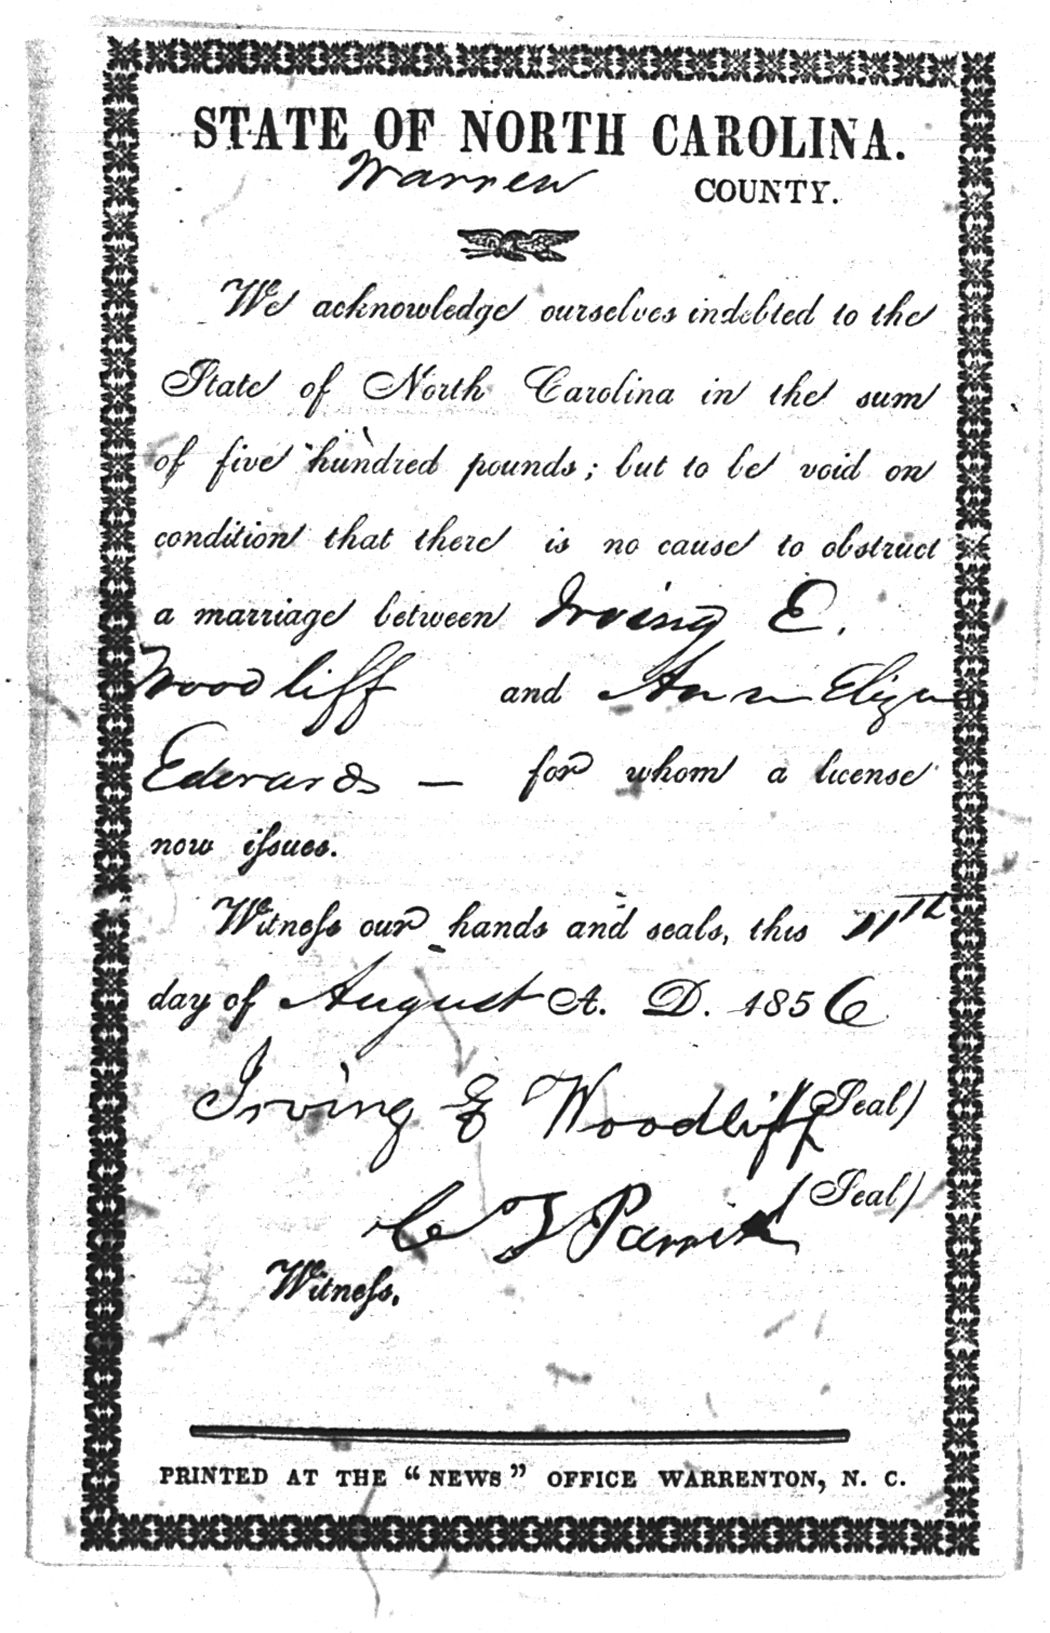 STATE OF NORTH CAROLINA.
Warren COUNTY.
We acknowledge ourselves indebted to the
State of North Carolina in the sum
of five hundred pounds; but to be void on
condition that there is no cause to obstruct
a marriage between Irving E.
Woodliff and Ann Eliza
Edwards — for whom a license
now issues.
Witness our hands and seals, this 11th
day of August A. D. 1856
Irving E Woodliff (Seal)
C T Parrish (Seal)
Witness,
PRINTED AT THE "NEWS" OFFICE WARRENTON, N. C.